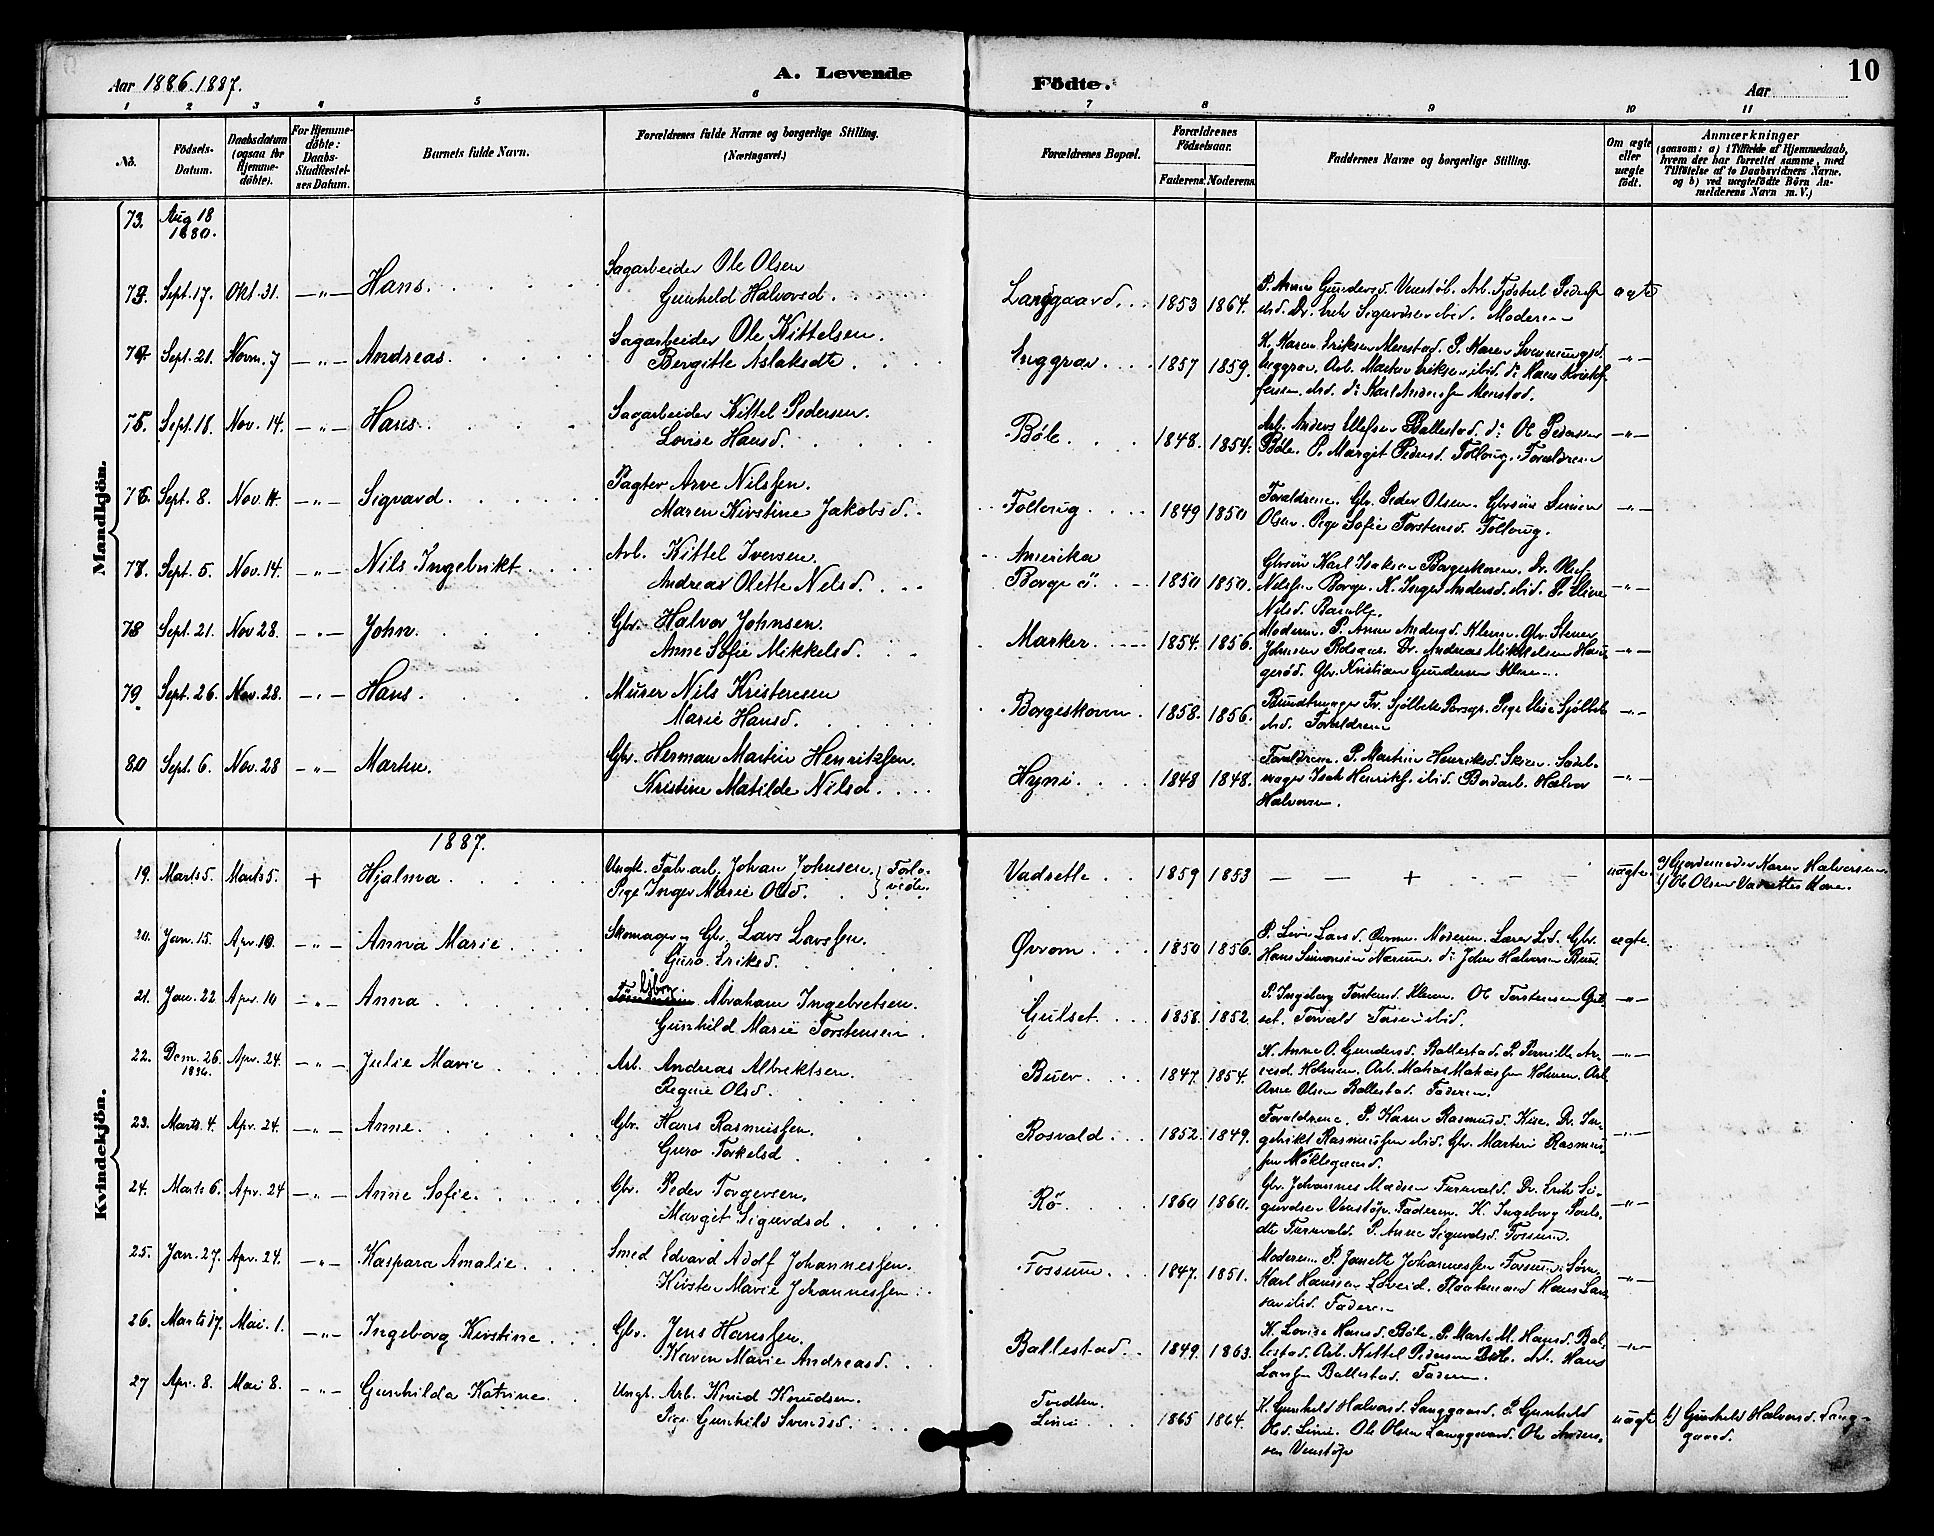 Aar 1886.1887.
A. Levende
Födte.
Aar
10
1 2 3 4 5 6 7 8 9 10 11
No.
Födsels-Datum.
Daabsdatum (ogsaa for Hjemme-døbte).
For Hjemme-døbte: Daabs-Stadfæstel-ses Datum.
Barnets fulde Navn.
Forældrenes fulde Navne og borgerlige Stilling. (Næringsvei.)
Forældrenes Bopæl.
Forældrenes Födselsaar.
Faderens. Moderens.
Faddernes Navne og borgerlige Stilling.
Om ægte eller uægte født.
Anmærkninger
(saasom: a) i Tilfælde af Hjemmedaab,
hvem der har forrettet samme, med
Tilføielse af to Daabsvidners Navne,
og b) ved uægtefødte Börn An-
melderens Navn m. V.)
Mandkjön.
73. Aug 18
1880.
73. Sept. 17. Okt. 31. —„— Hans. Sagarbeider Ole Olsen
Gunhild Halvorsd. Langgaard. 1853 1864. P. Anne Gundersd. Venstøb. Arb.
ibid. Moderen ægte
74. Sept. 21. Novm. 7 —„— Andreas. Sagarbeider Ole Kittelsen.
Bergitte Aslaksdt. Enggrav. 1857 1859. K. Karen Eriksen Menstad. P. Karen
Enggrav. Arb. Marten Eriksen ibid. d: Hans
ibid. d: Karl Andersen Menstad. —„—
75. Sept. 18. Nov. 14. —„— Hans. Sagarbeider Kittel Pedersen.
Lovise Hansd. Bøle. 1848. 1854. Arb. Anders Ellefsen Ballestad. d: Ole Pedersen
Bøle. P. Margit Pedersd. Follaug. Forældrene —„—
76. Sept. 8. Nov. 14. —„— Sigvard. Pagter Arve Nilssen.
Maren Kirstine Jakobsd. Follaug. 1849 1850 Forældrene. Gbr. Peder Olsen. Gbrsøn Simen
Olsen. Pige Sofie Torstensd. Follaug. —„—
77. Sept. 5. Nov. 14. —„— Nils Ingebrikt. Arb. Kittel Iversen.
Andrea Olette Nilsd. Amerika
Borge ö. 1850 1850. Gbrsøn Karl Isaksen Borgeskoven. Dr. Oluf
Nilssen Borge. K. Inger Andersd. ibid. P. Eline
Nilsd. Bamble. —„—
78 Sept. 21. Nov 28. —„— John. Gbr. Halvor Johnsen.
Anne Sofie Mikkelsd. Marker. 1854. 1856. Moderen. P. Anne Klemn. Gbr. Stener
Johnsen Dr. Andreas Mikkelsen
Gbr. Kristian Gundersen —„—
79. Sept. 26. Nov. 28. —„— Hans. Murer Nils Kristensen
Marie Hansd. Borgeskoven. 1858. 1856. Buntmager Fr. Sjølbek Porsgr. Pige Elise Sjølbek
ibid. Forældrene —„—
80 Sept. 6. Nov. 28 —„— Marten. Gbr. Herman Martin Henritzsen
Kristine Matilde Nilsd. Hyni. 1848 1848. Forældrene. P. Martine Henriksd. Skien.
Isak Henriks. ibid. Bordarb. Halvor
Halvorsen. —„—
Kvindekjön.
1887.
19. Marts 5. Marts 5. + Hjalma Ungk. Fabr.arb. Johan Johnsen. } Forlo-
Pige Inger Marie Olsd. } vede. Vadrette 1859 1853 — — + — — uægte. a) Gjordemoder Karen Halvorsen
b) Ole Olsen Vadrettes Kone.
20. Jan. 15. Apr. 10. —„— Anna Marie Skomager og Gbr. Lars Larssen.
Guro Eriksd. Øvrom. 1850 1856. P. Live Larsd. Øvrom. Moderen. Lærer Lid. Gbr.
Hans Simonsen Nærum. d: John Halvorsen ægte.
21. Jan. 22 Apr. 10 —„— Anna Abraham Ingebretsen.
Gunhild Marie Torstensen. Gulset. 1858. 1852. P. Ingeborg Torstensd. Klemn. Ole Torstensen Gul-
set. Torvald ibid. —„—
22. Decm. 26.
1886. Apr. 24 —„— Julie Marie Arb. Andreas Albrektsen.
Regine Olsd. Buer 1847. 1854. K. Anne O. Gundersd. Ballestad. P. Pernille Ar-
vesd. Holmen. Arb. Matias Matiassen Holmen. Arb.
Arne Olsen Ballestad. Faderen. —„—
23. Marts. 4. Apr. 24. —„— Anne. Gbr. Hans Rasmussen.
Guro Torkelsd. Rosvald. 1852. 1849. Forældrene. P. Karen Rasmusd. Kise. Dr. In-
gebrikt Rasmussen ibid. Gbr. Marten Rasmus-
sen Möklegaard. —„—
24. Marts 6. Apr. 24 —„— Anne Sofie. Gbr. Peder Torgersen.
Margit Sigurdsd. Rö. 1860 1860. Gbr. Johannes Madsen Furuvald. Dr. Erik Si-
gurdsen Venstöp. Faderen. K. Ingeborg Pouls-
dt. Furuvald. P. Anne Sigurdsd. Fossum. —„—
25. Jan. 27. Apr. 24. —„— Kaspara Amalie. Smed Edvard Adolf Johannessen.
Kirsten Marie Johannessen. Fossum. 1847. 1851. Moderen. P. Janette Johannessen Fossum.
Karl Hanssen Løveid. Hans Lar-
sen ibid. Faderen. —„—
26. Marts 17. Mai. 1. —„— Ingeborg Kirstine Gbr. Jens Hanssen.
Karen Marie Andreasd. Ballestad. 1849. 1863. K. Lovise Hansd. Bøle. P. Marte M. Hansd. Bal-
lestad. Arb. Kittel Pedersen Bøle. Arb. Hans
Larssen Ballestad. Faderen. —„—
27 Apr. 8. Mai 8. —„— Gunhilda Katrine Ungk. Arb. Knud Knudsen.
Pige Gunhild Svendsd. Tvedten.
Limi. 1865 1864. K. Gunhild Halvorsd. Langgaard. P. Gunhild
Olsd. Limi. Ole Olsen Langgaard. Ole Anders-
sen Venstöp uægte b) Gunhild Halvorsd. Lang-
gaard.